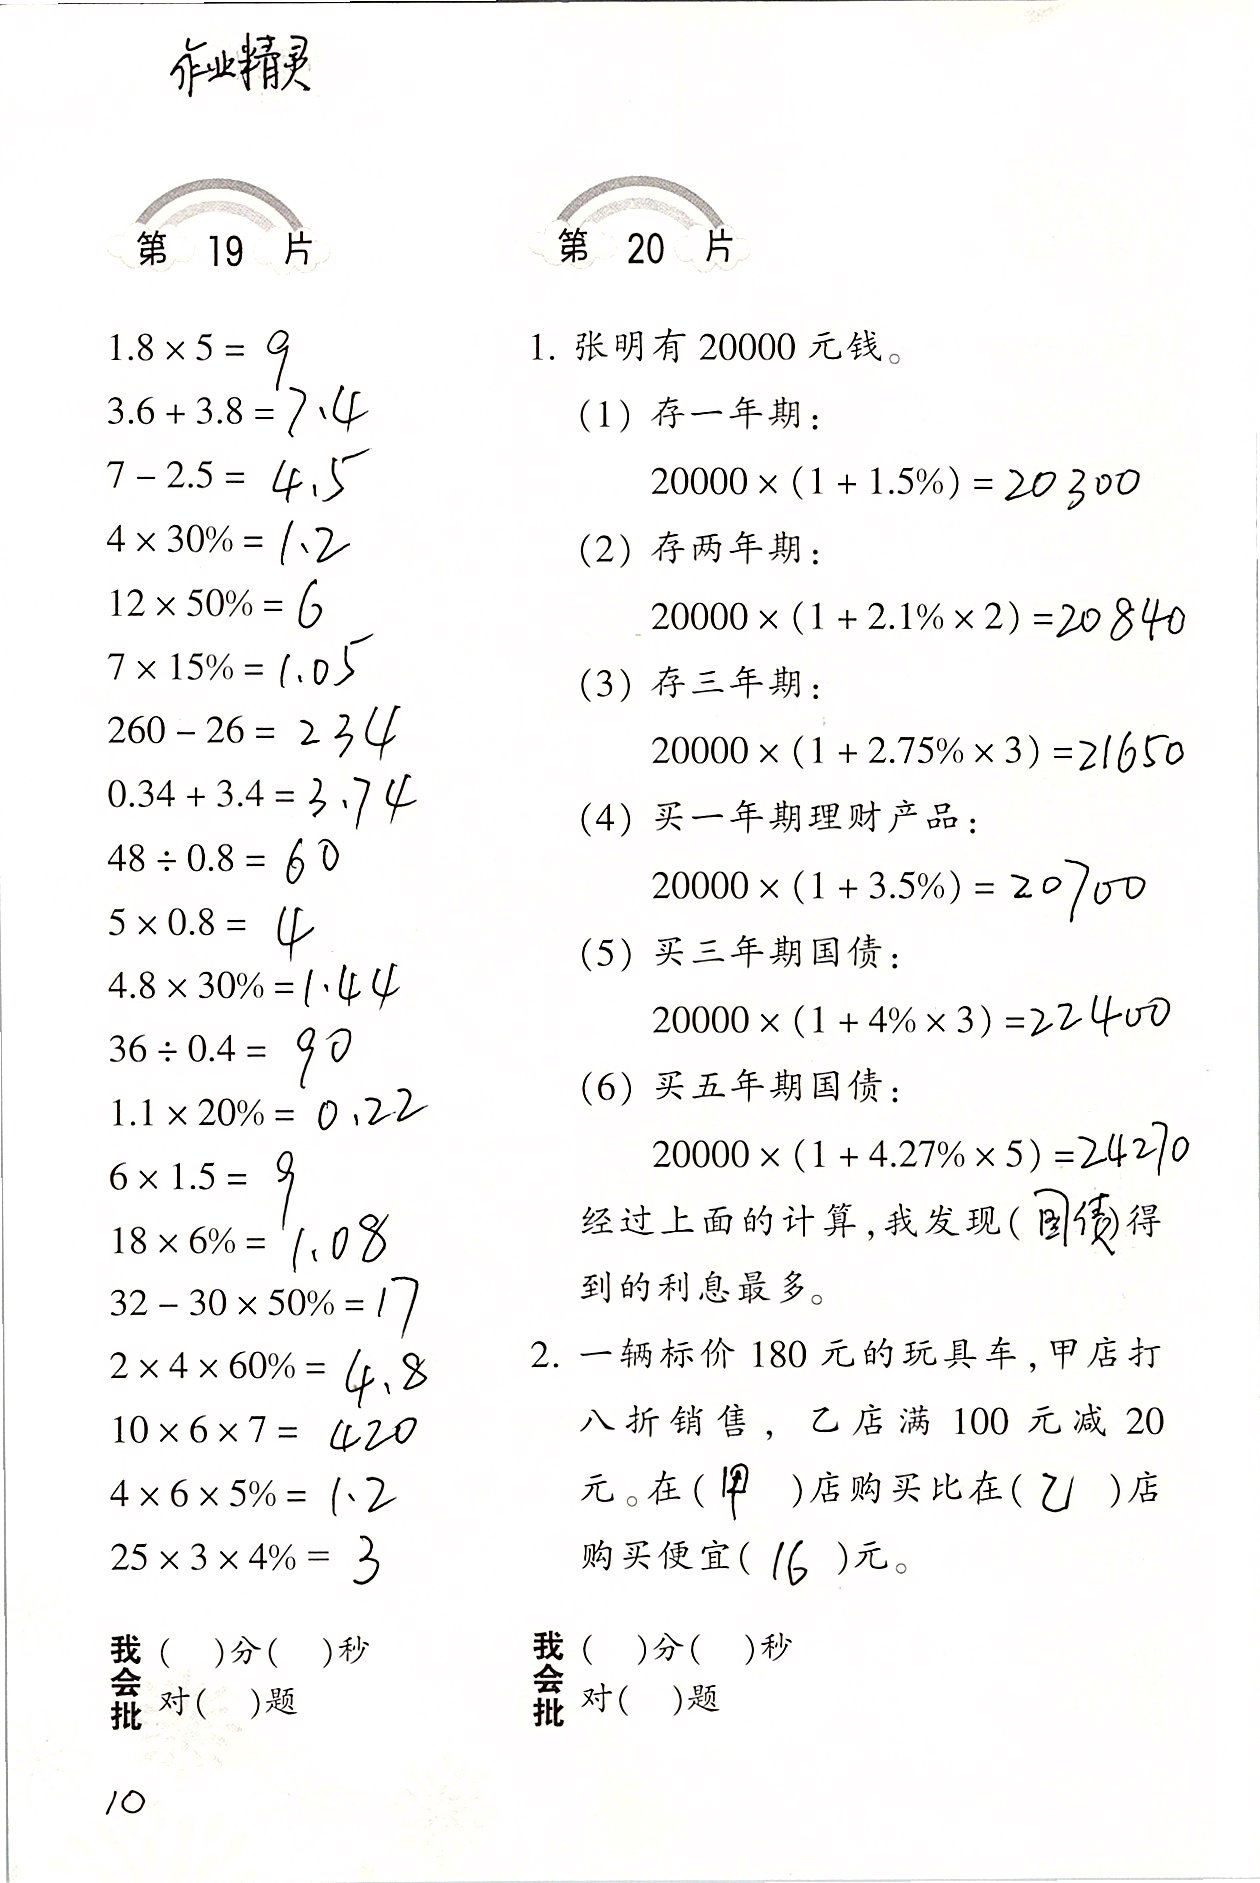 作业精灵
第 19 片
1.8 × 5 = 9
3.6 + 3.8 = 7.4
7 − 2.5 = 4.5
4 × 30% = 1.2
12 × 50% = 6
7 × 15% = 1.05
260 − 26 = 234
0.34 + 3.4 = 3.74
48 ÷ 0.8 = 60
5 × 0.8 = 4
4.8 × 30% = 1.44
36 ÷ 0.4 = 90
1.1 × 20% = 0.22
6 × 1.5 = 9
18 × 6% = 1.08
32 − 30 × 50% = 17
2 × 4 × 60% = 4.8
10 × 6 × 7 = 420
4 × 6 × 5% = 1.2
25 × 3 × 4% = 3
我会批 ( )分( )秒
对( )题
第 20 片
1. 张明有 20000 元钱。
(1) 存一年期:
20000 × (1 + 1.5%) = 20300
(2) 存两年期:
20000 × (1 + 2.1% × 2) = 20840
(3) 存三年期:
20000 × (1 + 2.75% × 3) = 21650
(4) 买一年期理财产品:
20000 × (1 + 3.5%) = 20700
(5) 买三年期国债:
20000 × (1 + 4% × 3) = 22400
(6) 买五年期国债:
20000 × (1 + 4.27% × 5) = 24270
经过上面的计算,我发现(国债)得
到的利息最多。
2. 一辆标价 180 元的玩具车,甲店打
八折销售，乙店满 100 元减 20
元。在(甲)店购买比在(乙)店
购买便宜(16)元。
我会批 ( )分( )秒
对( )题
10